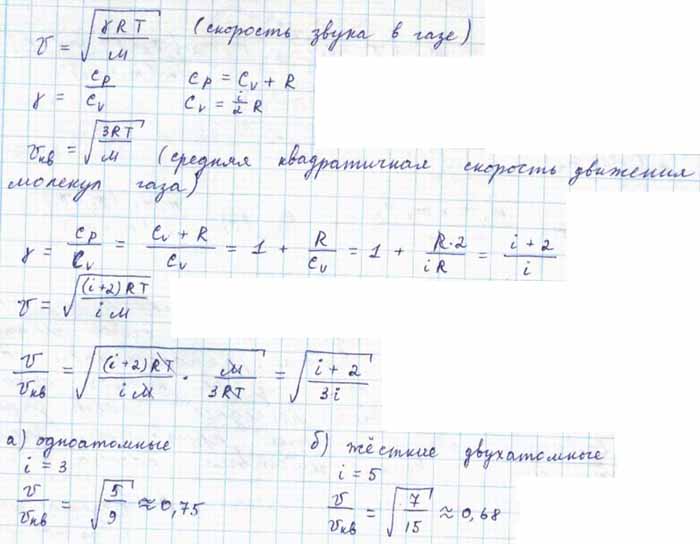 v = √(γRT/M) (скорость звука в газе)
γ = Cp/Cv Cp = Cv + R
Cv = i/2 R
vкв = √(3RT/M) (средняя квадратичная скорость движения
молекул газа)
γ = Cp/Cv = (Cv + R)/Cv = 1 + R/Cv = 1 + R·2/iR = (i + 2)/i
v = √((i+2)RT/iM)
v/vкв = √((i+2)RT/iM · M/3RT) = √((i + 2)/3i)
а) одноатомные
i = 3
v/vкв = √(5/9) ≈ 0,75
б) жёсткие двухатомные
i = 5
v/vкв = √(7/15) ≈ 0,68